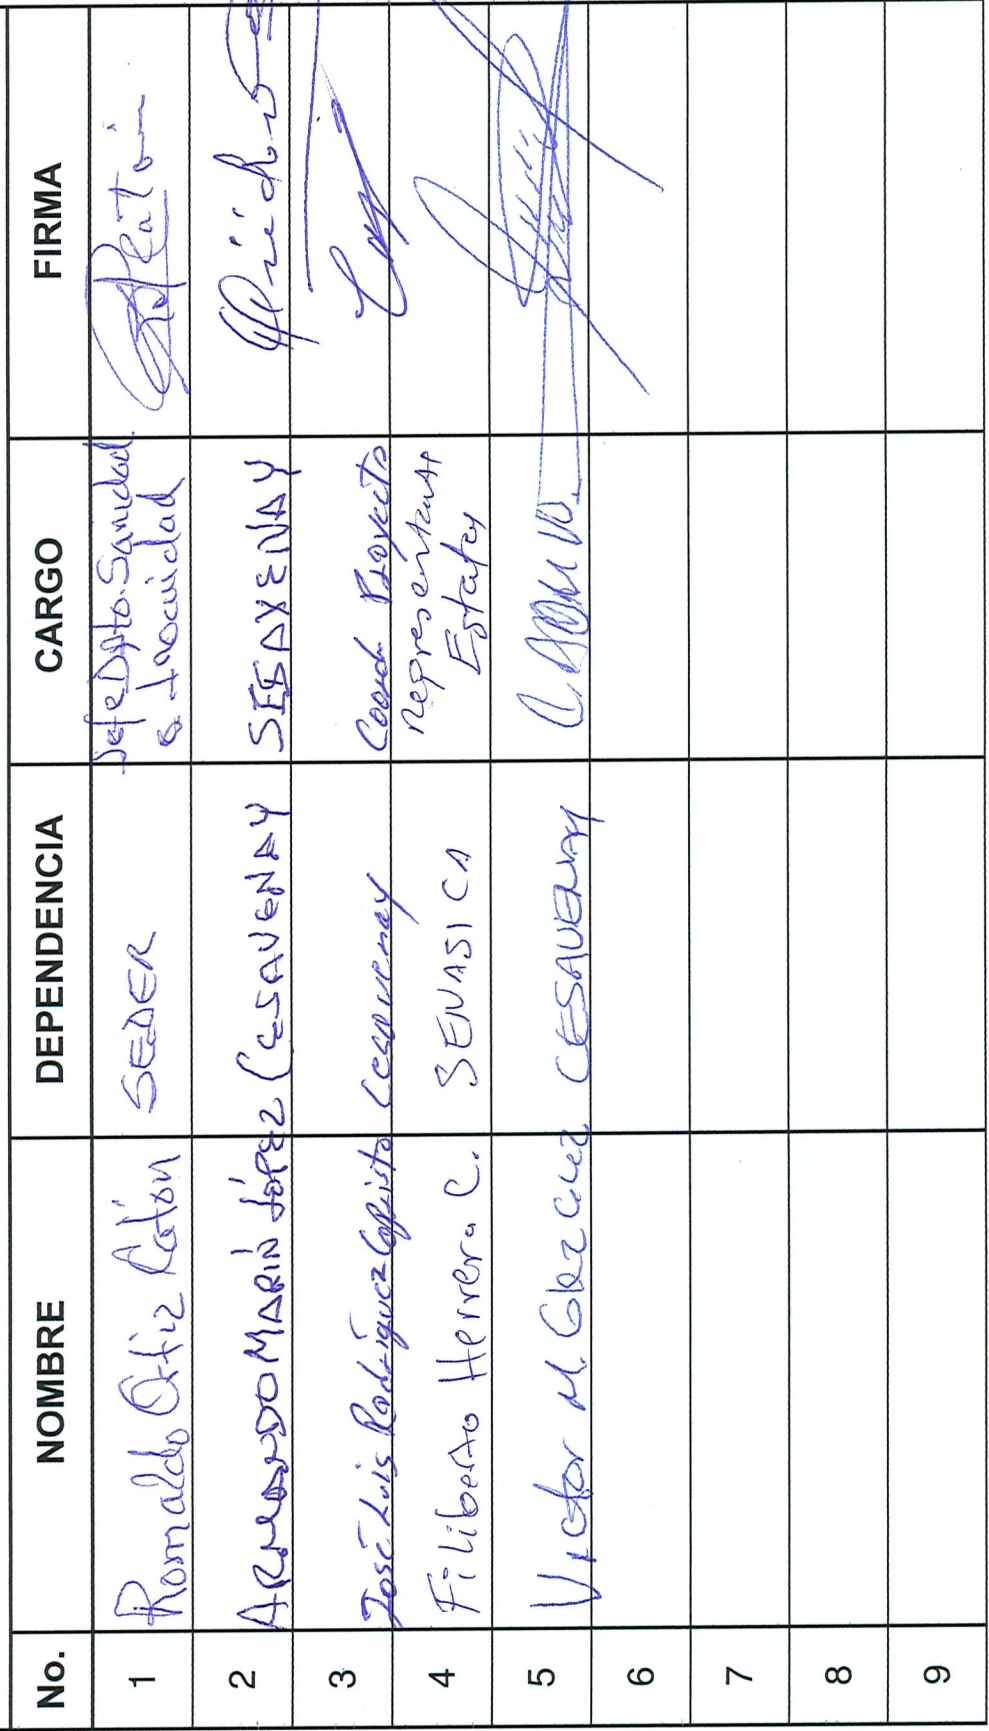 No. NOMBRE DEPENDENCIA CARGO FIRMA
1 Romaldo Ortiz Ratón SEDER Jefe Dpto. Sanidad
e Inocuidad
2 ARMANDO MARÍN LÓPEZ CESAVENAY
3 José Luis Rodríguez Cesavenay Coord Proyecto
4 Filiberto Herrera C. SENASICA Representante
Estatal
5 Victor M. CESAVENAY
6
7
8
9